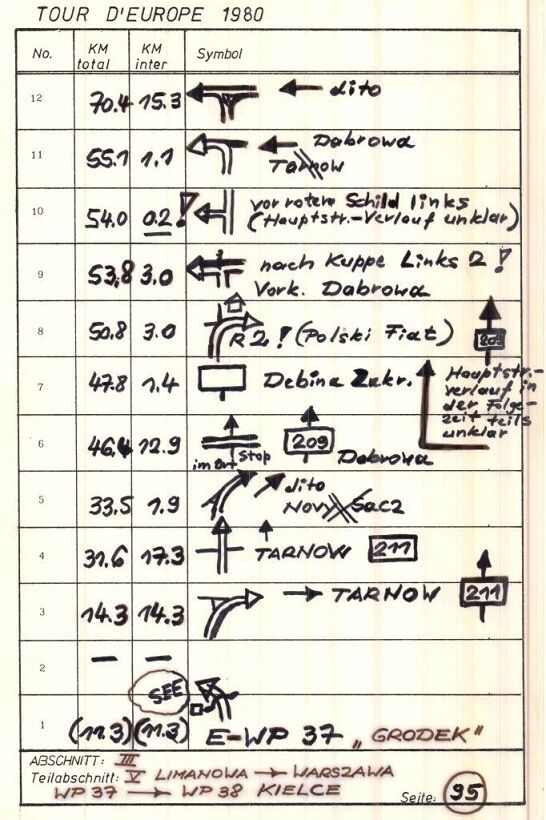 TOUR D'EUROPE 1980
No. KM total KM inter Symbol
12 70.4 15.3 dito
11 55.1 1.1 Dabrowa
Tarnow
10 54.0 0.2! vor rotem Schild links
(Hauptstr.-Verlauf unklar)
9 53.8 3.0 nach Kuppe Links 2!
Vork. Dabrowa
8 50.8 3.0 R 2! (Polski Fiat) 209
7 47.8 1.4 Debina Zakr.
Hauptstr.-
verlauf in
der Folge-
zeit teils
unklar
6 46.4 12.9 im Ort Stop 209 Dabrowa
5 33.5 1.9 dito
Novy Sacz
4 31.6 17.3 TARNOW 211
3 14.3 14.3 TARNOW 211
2 — —
SEE
1 (11.3) (11.3) E-WP 37 „GRODEK"
ABSCHNITT: III
Teilabschnitt: V LIMANOWA → WARSZAWA
WP 37 → WP 38 KIELCE
Seite: 95